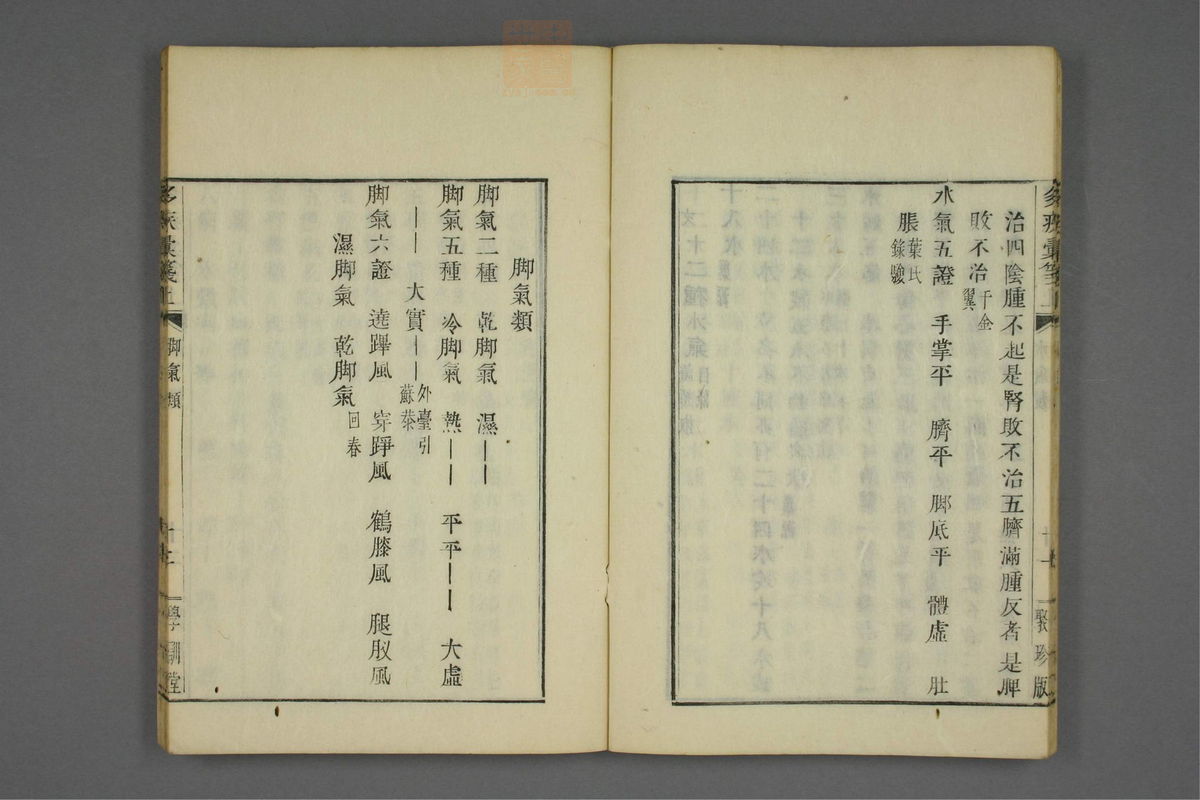 治四陰腫不起是腎敗不治五臍滿腫反者是脾
敗不治千金翼
水氣五證 手掌平 臍平 脚底平 體虛 肚
脹葉氏錄驗
聚珍版
脚氣類
脚氣二種 乾脚氣 濕——
脚氣五種 冷脚氣 熱—— 平平—— 大虛
—— 大實——外臺引蘇恭
脚氣六證 遶踝風 穿踭風 鶴膝風 腿肞風
濕脚氣 乾脚氣回春
脚氣類
學訓堂